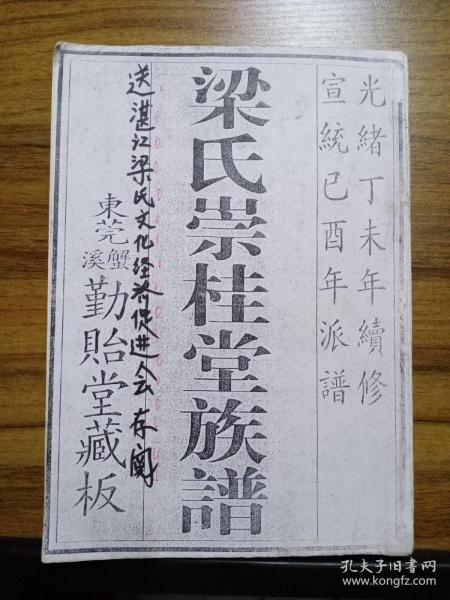 光緒丁未年續修
宣統已酉年派譜
梁氏崇桂堂族譜
送湛江梁氏文化经济促进会存阅
東莞蟹溪勤貽堂藏板
孔夫子旧书网
www.kongfz.com